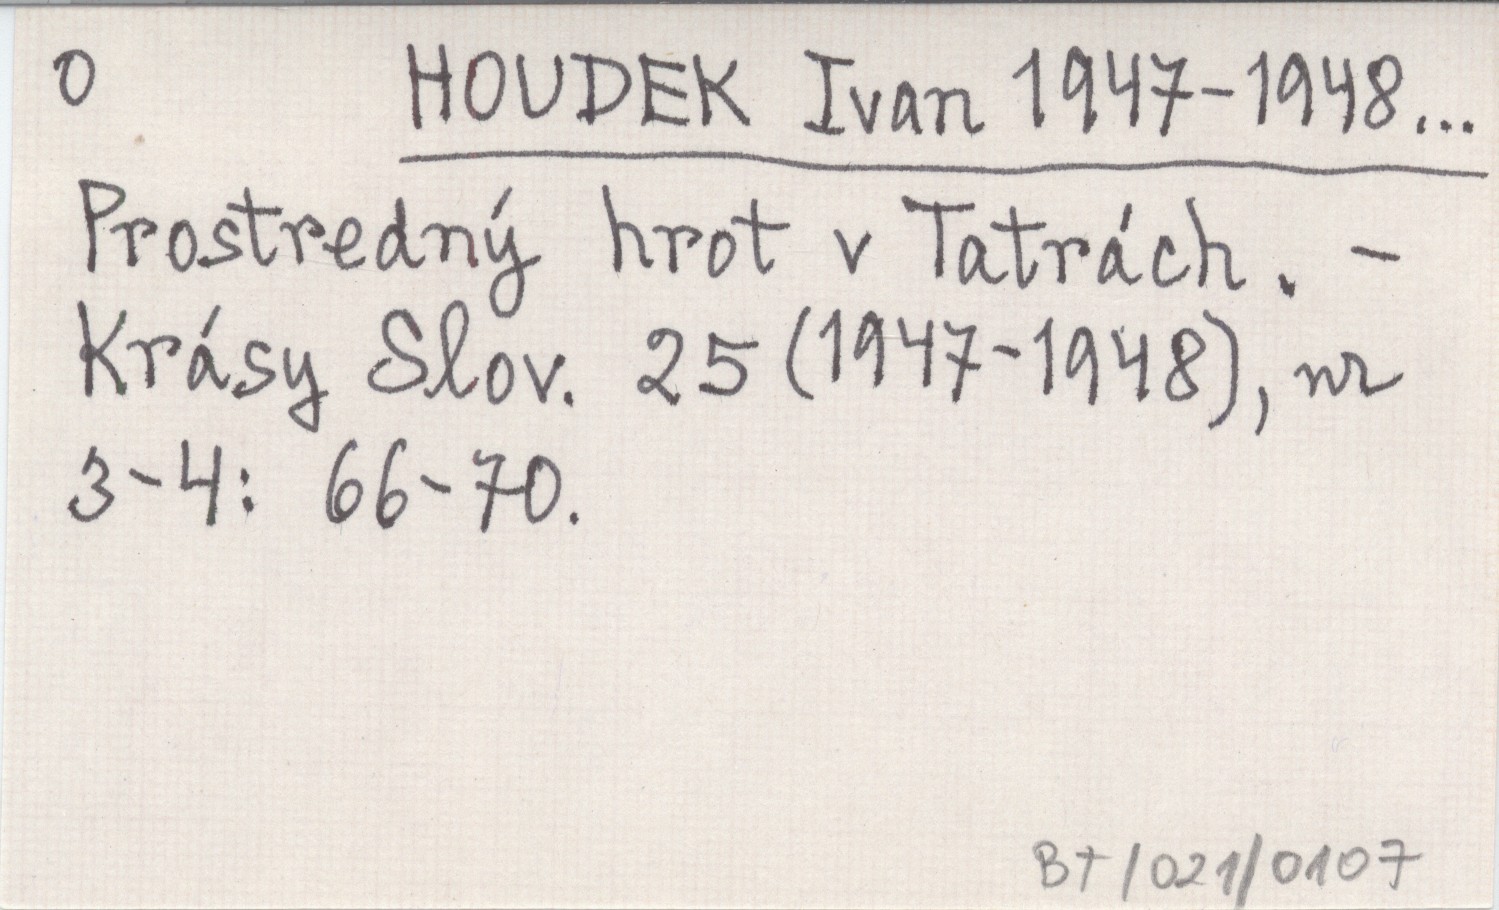 O HOUDEK Ivan 1947-1948...
Prostredný hrot v Tatrách. -
Krásy Slov. 25 (1947-1948), nr
3-4: 66-70.
BT/021/0107